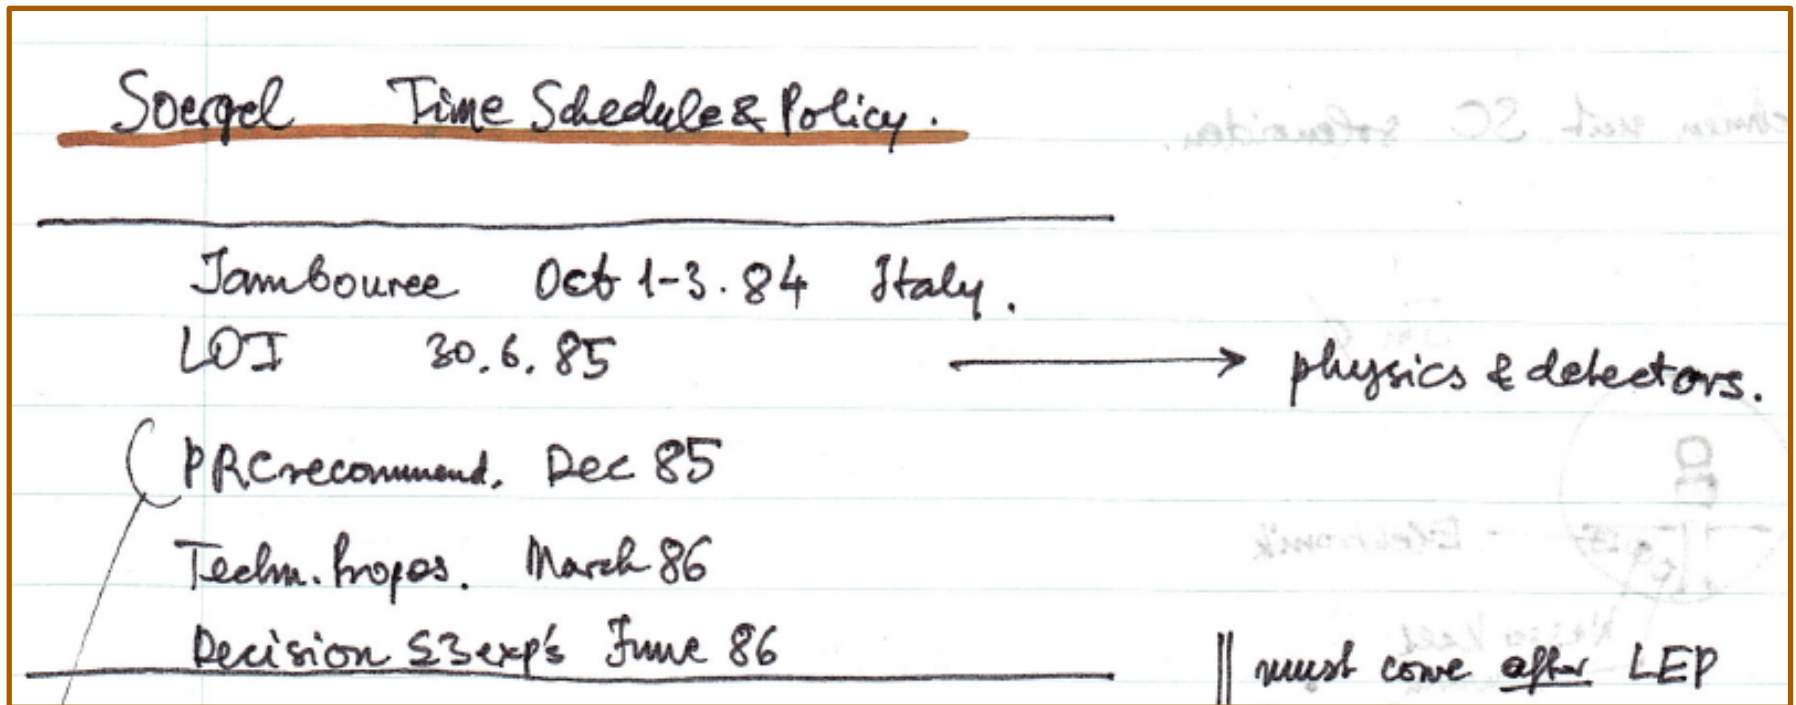 Soergel Time Schedule & Policy.
Jambouree Oct 1-3.84 Italy.
LOI 30.6.85 → physics & detectors.
PRC recommend. Dec 85
Techn. Propos. March 86
Decision ≤3 exp's June 86
must come after LEP